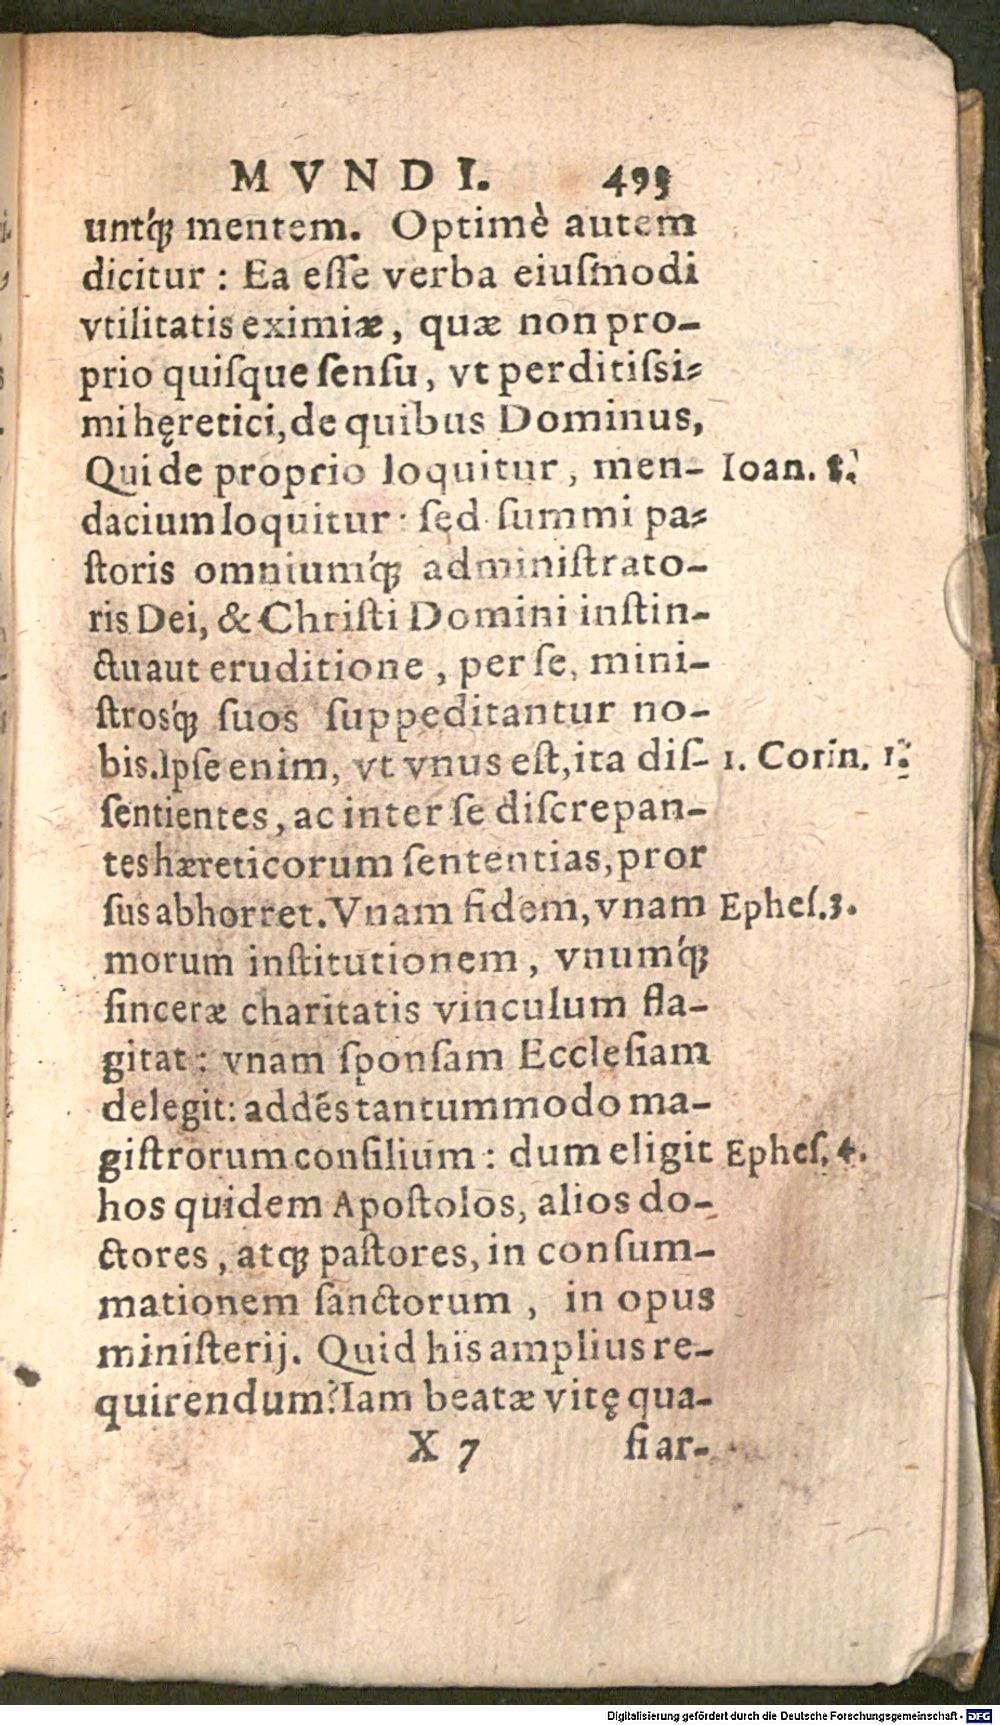 MVNDI. 493
untq́; mentem. Optimè autem
dicitur : Ea eſſe verba eiuſmodi
vtilitatis eximiæ, quæ non pro-
prio quiſque ſenſu, vt perditiſsi-
mi hęretici, de quibus Dominus,
Qui de proprio loquitur, men- Ioan. 8.
dacium loquitur : ſed ſummi pa-
ſtoris omniumq́; adminiſtrato-
ris Dei, & Chriſti Domini inſtin-
ctu aut eruditione, per ſe, mini-
ſtrosq́; ſuos ſuppeditantur no-
bis. Ipſe enim, vt vnus eſt, ita diſ- 1. Corin. 1.
ſentientes, ac inter ſe diſcrepan-
tes hæreticorum ſententias, pror
ſus abhorret. Vnam fidem, vnam Epheſ. 3.
morum inſtitutionem, vnumq́;
ſinceræ charitatis vinculum fla-
gitat : vnam ſponſam Eccleſiam
delegit: addẽs tantummodo ma-
giſtrorum conſilium : dum eligit Epheſ. 4.
hos quidem Apoſtolos, alios do-
ctores, atq; paſtores, in conſum-
mationem ſanctorum, in opus
miniſterij. Quid his amplius re-
quirendum? Iam beatæ vitę qua-
X 7 ſi ar-
Digitalisierung gefördert durch die Deutsche Forschungsgemeinschaft - DFG